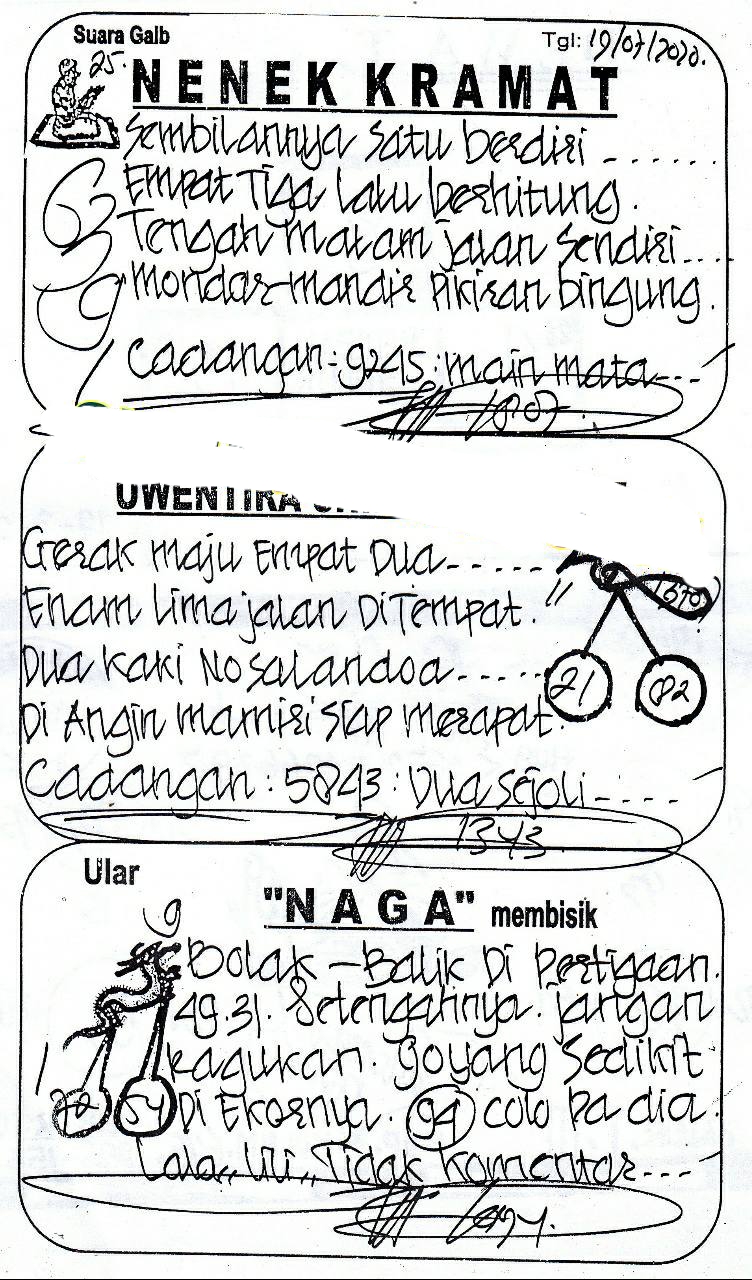 Suara Galb
Tgl: 19/07/2020.
25.
NENEK KRAMAT
Sembilannya satu berdiri ......
Empat Tiga lalu berhitung.
Tengah malam jalan sendiri....
Mondar-mandir pikiran bingung.
639
Cadangan: 9245: main mata....
UWENTIRA
Gerak maju Empat Dua......
Enam Lima jalan DiTempat.
Dua kaki Nosalandoa......
Di Angin mamiri siap merapat.
21 82
Cadangan: 5843: Dua sejoli....
1343.
Ular
"NAGA" membisik
9
Bolak-Balik Di Pertigaan.
49.31. Setengahnya. jangan
ragukan. Goyang sedikit
72 54 Di Ekornya. 94 colo pa dia.
Lala,, Lili,, Tidak komentar....